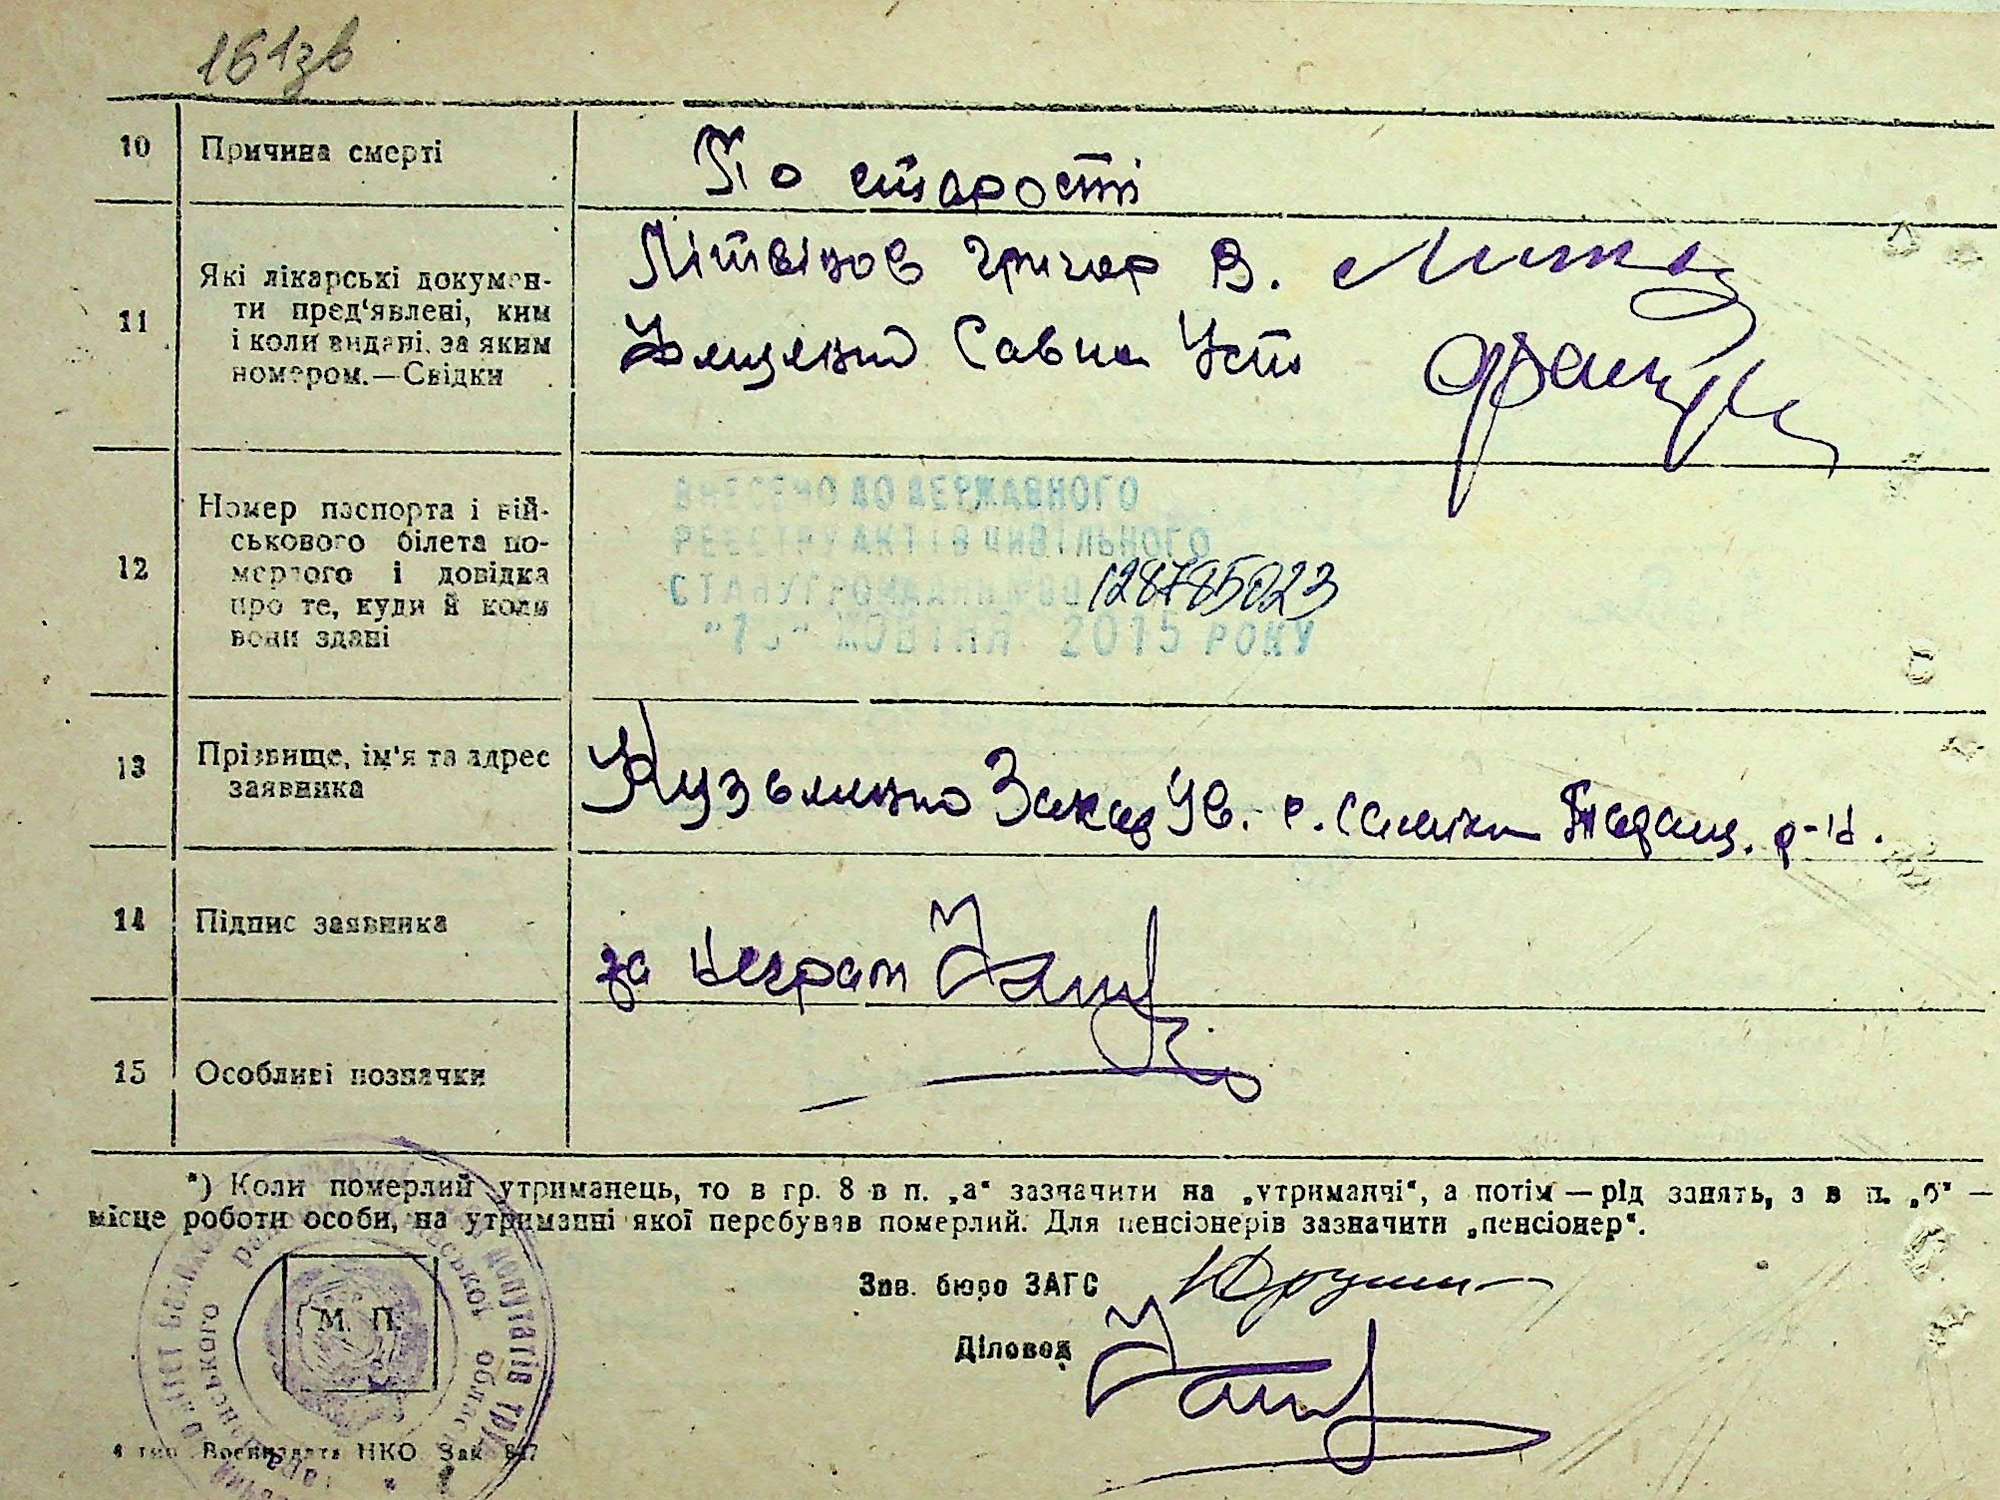 161зв
10 Причина смерті По старості
11 Які лікарські докумен-
ти пред'явлені, ким
і коли видані, за яким
номером.—Свідки
Літвінов Григор В.
Савка Уст
12 Номер паспорта і вій-
ськового білета по-
мерлого і довідка
про те, куди й коли
вони здані
ВНЕСЕНО ДО ДЕРЖАВНОГО
РЕЄСТРУ АКТІВ ЦИВІЛЬНОГО
СТАНУ ГРОМАДЯН 128785023
ЖОВТНЯ 2015 РОКУ
13 Прізвище, ім'я та адрес
заявника
Кузьменко Захар Ів. с. Таращ. р-н.
14 Підпис заявника за неграм
15 Особливі позначки
*) Коли померлий утриманець, то в гр. 8 в п. „а“ зазначити на „утриманчі“, а потім — рід занять, а в п. „б“ —
місце роботи особи, на утриманні якої перебував померлий. Для пенсіонерів зазначити „пенсіонер“.
Зав. бюро ЗАГС
М. П.
Діловод
4 тип. Воениздата НКО Зак. 867
депутатів
області